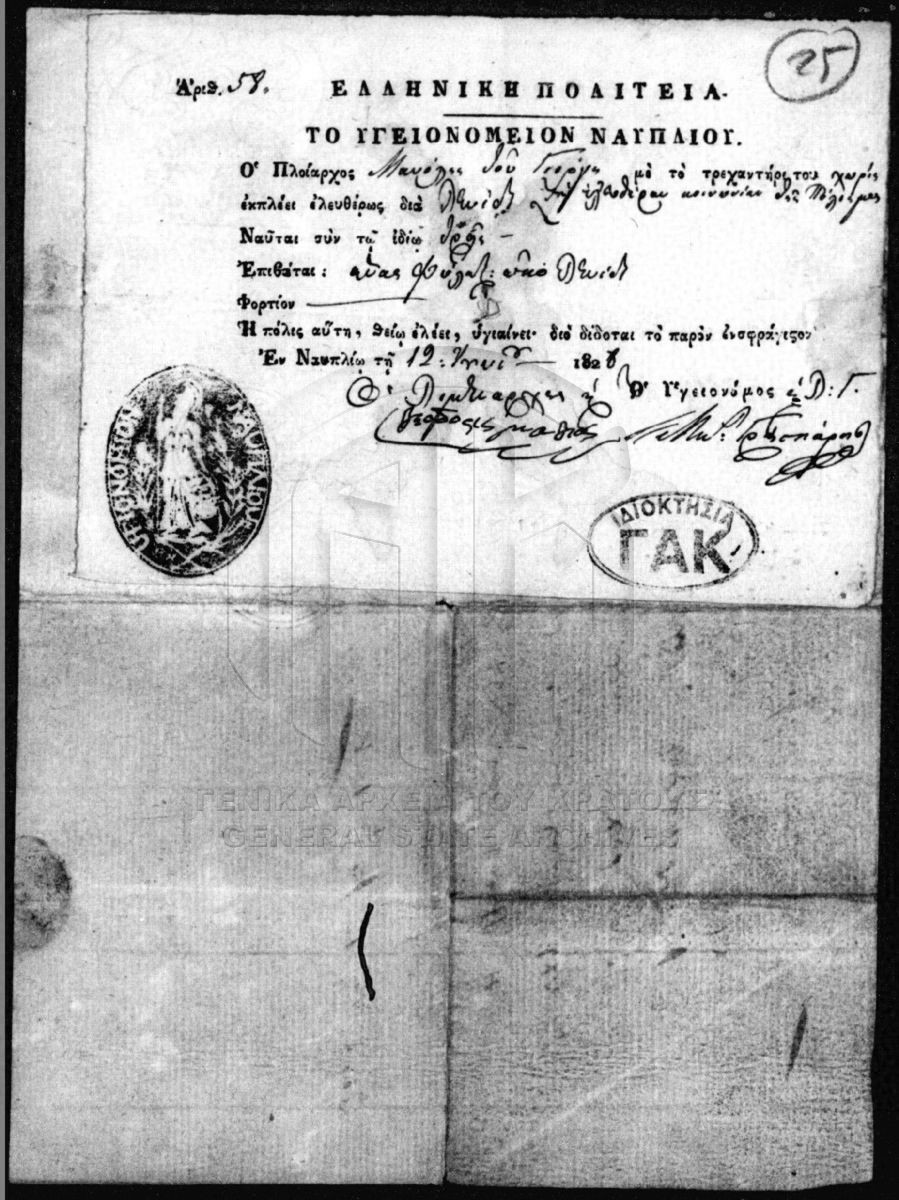 25
Ἀριθ. 58.
ΕΛΛΗΝΙΚΗ ΠΟΛΙΤΕΙΑ.
ΤΟ ΥΓΕΙΟΝΟΜΕΙΟΝ ΝΑΥΠΛΙΟΥ.
Ὁ Πλοίαρχος Μανόλης τοῦ Γεόργη μὲ τὸ τρεχαντήρι του χωρὶς
ἐκπλέει ἐλευθέρως διὰ Λενίδι τὴν ἐλευθέραν κοινωνίαν τῆς Πόλεως μας
Ναῦται σὺν τῷ ἰδίῳ τρεῖς
Ἐπιβάται: ἕνας ἀπὸ Λενίδι
Φορτίον
Ἡ πόλις αὕτη, θείῳ ἐλέει, ὑγιαίνει· διὸ δίδοται τὸ παρὸν ἐνσφράγιστον
Ἐν Ναυπλίῳ τῇ 12: 1828
Ὁ Ὑγειονόμος
ΥΓΕΙΟΝΟΜΙΟΝ ΝΑΥΠΛΙΟΥ
ΙΔΙΟΚΤΗΣΙΑ
ΓΑΚ
ΓΕΝΙΚΑ ΑΡΧΕΙΑ ΤΟΥ ΚΡΑΤΟΥΣ
GENERAL STATE ARCHIVES